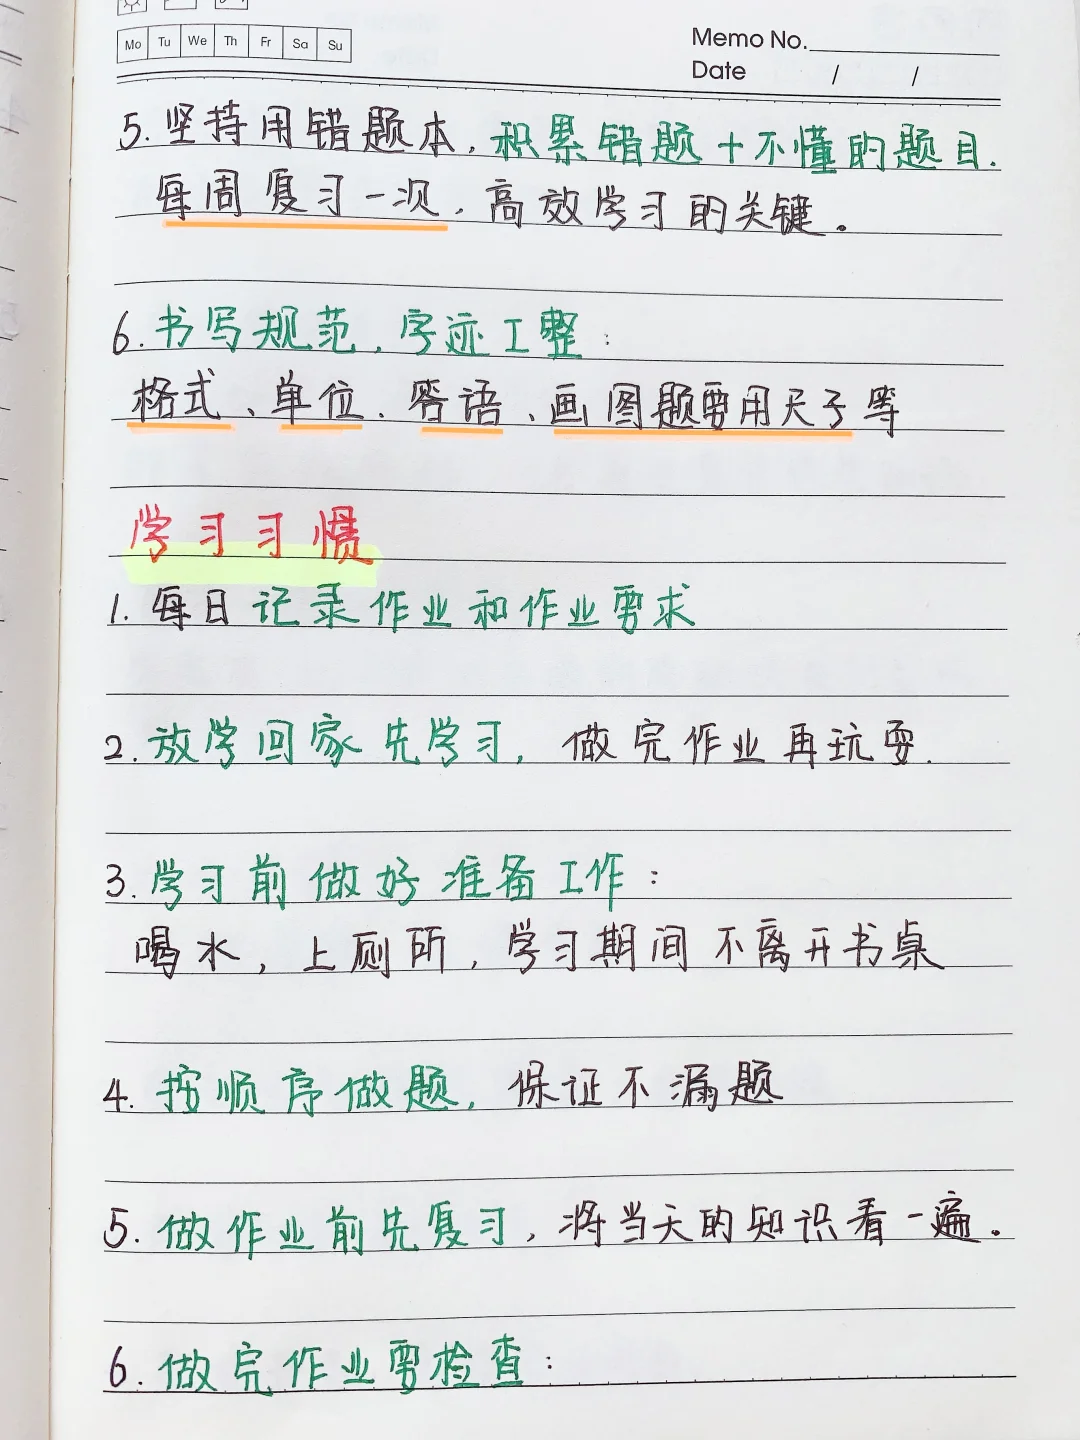 Mo Tu We Th Fr Sa Su
Memo No.
Date / /
5. 坚持用错题本，积累错题+不懂的题目.
每周复习一次，高效学习的关键。
6. 书写规范，字迹工整：
格式、单位、答语、画图题要用尺子等
学习习惯
1. 每日记录作业和作业要求
2. 放学回家先学习，做完作业再玩耍.
3. 学习前做好准备工作：
喝水，上厕所，学习期间不离开书桌
4. 按顺序做题，保证不漏题
5. 做作业前先复习，将当天的知识看一遍。
6. 做完作业要检查：